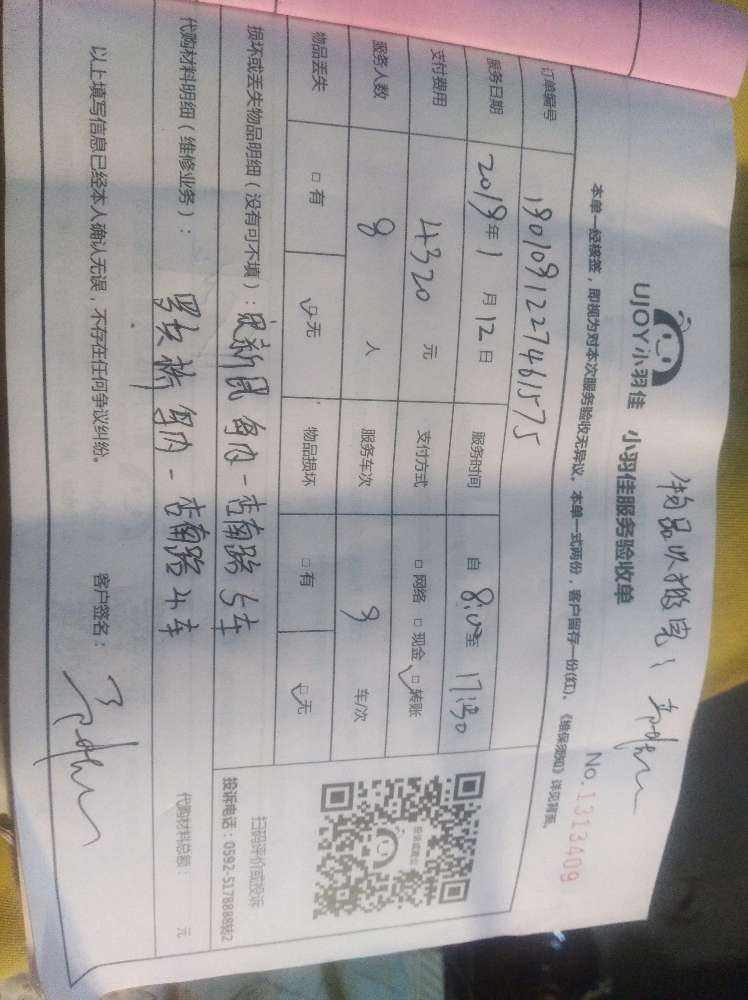 UJOY小羽佳
小羽佳服务验收单
No.1313409
本单一经核签，即视为对本次服务验收无异议。本单一式两份，客户留存一份(红)。《维保须知》详见背面。
订单编号 1901091227461575
服务日期 2019年1月12日 服务时间 自8:00至17:30
支付费用 4320元 支付方式 □网络 □现金 ☑转账
服务人数 8人 服务车次 9 车/次
物品丢失 □有 ☑无 物品损坏 □有 ☑无
损坏或丢失物品明细（没有可不填）：
杏南路5车
代购材料明细（维修业务）：
杏南路4车
代购材料总额： 元
扫码评价或投诉
投诉电话：0592-5178888转2
以上填写信息已经本人确认无误，不存在任何争议纠纷。
客户签名：